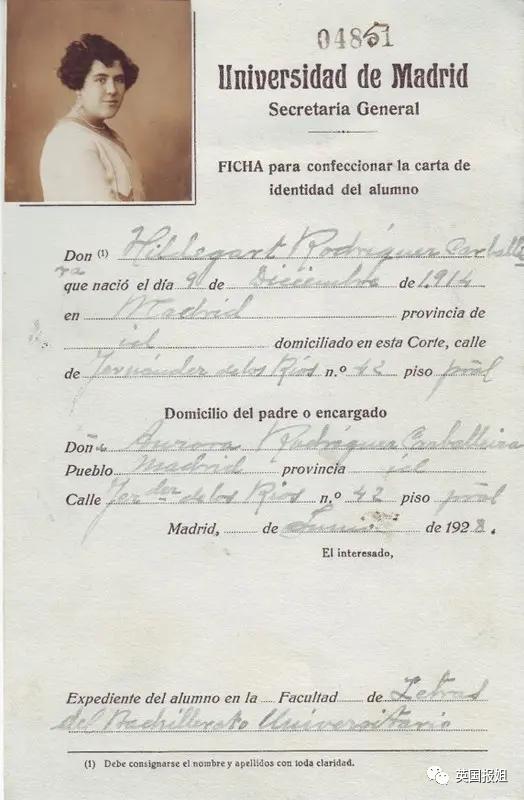 04851
Universidad de Madrid
Secretaria General
FICHA para confeccionar la carta de
identidad del alumno
Don (1) Hildegart Rodríguez Carballei
ra
que nació el día 9 de Diciembre de 1.914
en Madrid provincia de
id domiciliado en esta Corte, calle
de Fernández de los Ríos n.º 42 piso pral
Domicilio del padre o encargado
Doña Aurora Rodríguez Carballeira
Pueblo Madrid provincia id
Calle Fer der de los Ríos n.º 42 piso pral
Madrid, de Junio de 1928.
El interesado,
Expediente del alumno en la Facultad de Letras
del Bachillerato Universitario
(1) Debe consignarse el nombre y apellidos con toda claridad.
英国报姐